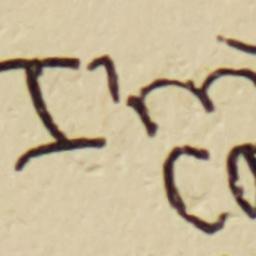 I'm
co